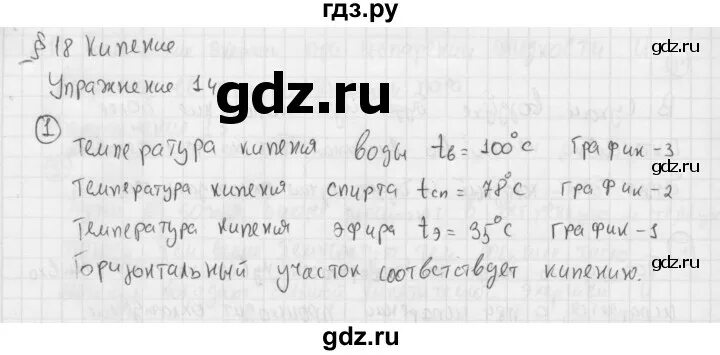 гдз.ру
§ 18 Кипение
Упражнение 14
gdz.ru
① Температура кипения воды tв = 100°C График-3
Температура кипения спирта tсп = 78°C График-2
gdz.ru
Температура кипения эфира tэ = 35°C График-1
Горизонтальный участок соответствует кипению.
gdz.ru
gdz.ru